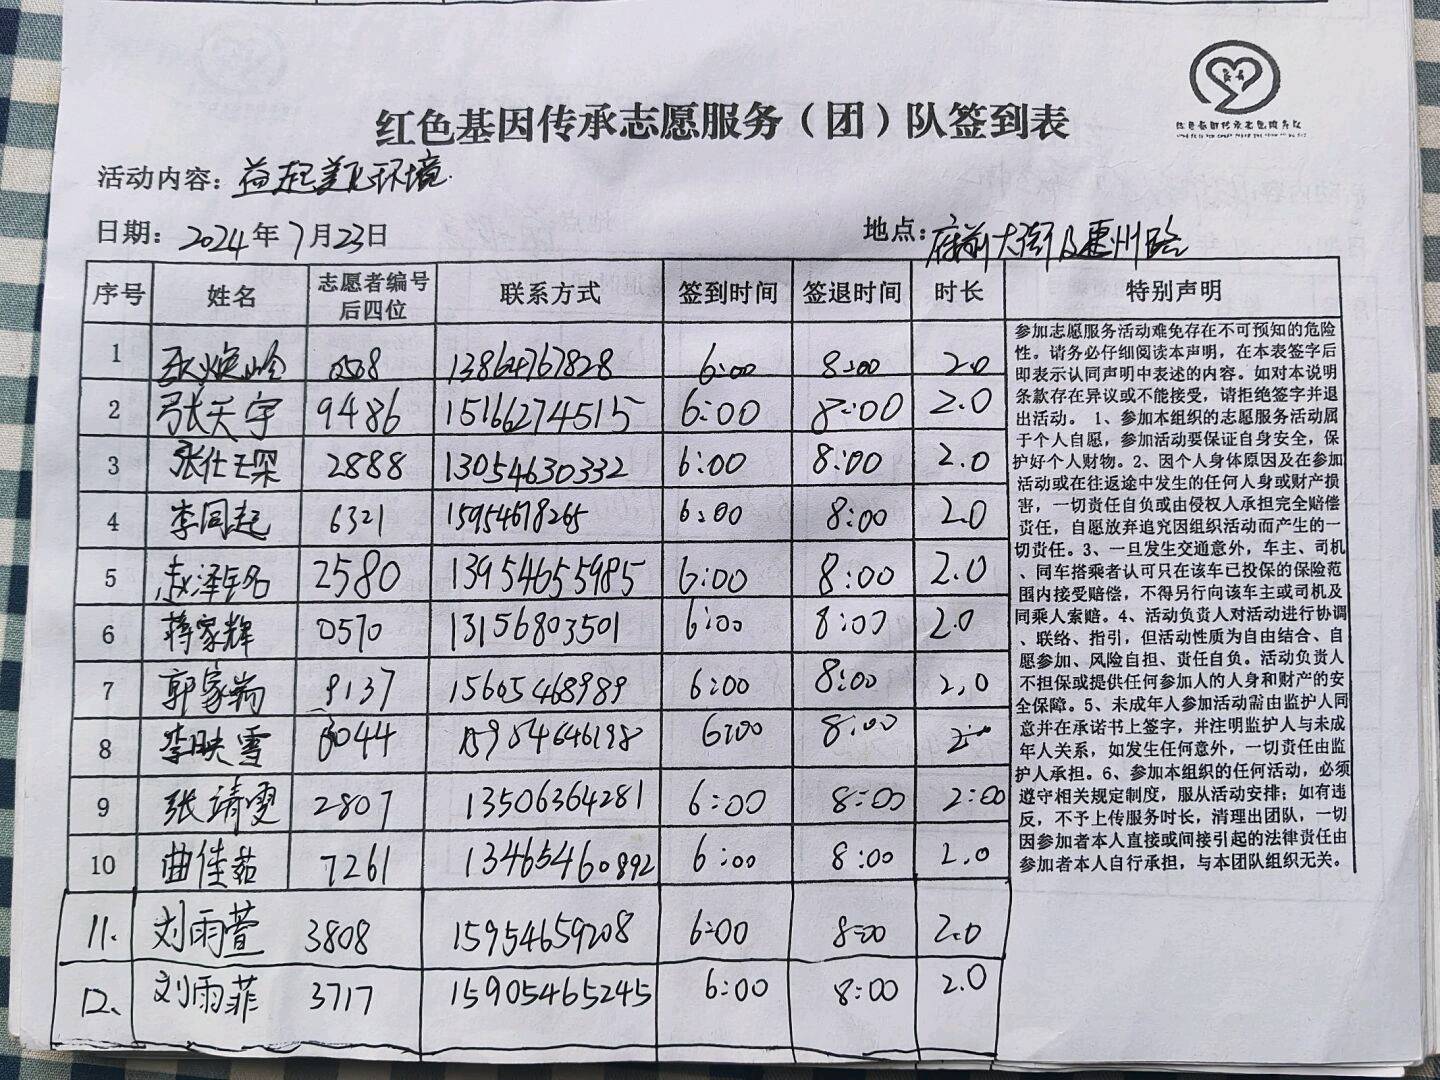 红色基因传承志愿服务（团）队签到表
红色基因传承志愿服务队
活动内容：益起美化环境
日期：2024年7月23日 地点：府前大街及惠州路
序号 姓名 志愿者编号后四位 联系方式 签到时间 签退时间 时长 特别声明
1 13864767828 6:00 8:00 2.0
2 张天宇 9486 15166274515 6:00 8:00 2.0
3 张仕琛 2888 13054630332 6:00 8:00 2.0
4 李同起 6321 15954678265 6:00 8:00 2.0
5 赵泽铭 2580 13954655985 6:00 8:00 2.0
6 蒋家辉 0570 13156803501 6:00 8:00 2.0
7 郭家瑞 9137 15605468989 6:00 8:00 2.0
8 李映雪 6044 15954646198 6:00 8:00 2.0
9 张靖雯 2807 13506364281 6:00 8:00 2:00
10 曲佳茹 7261 13465460892 6:00 8:00 2.0
11. 刘雨萱 3808 15954659208 6:00 8:00 2.0
12. 刘雨菲 3717 15905465245 6:00 8:00 2.0
参加志愿服务活动难免存在不可预知的危险
性。请务必仔细阅读本声明，在本表签字后
即表示认同声明中表述的内容。如对本说明
条款存在异议或不能接受，请拒绝签字并退
出活动。 1、参加本组织的志愿服务活动属
于个人自愿，参加活动要保证自身安全，保
护好个人财物。2、因个人身体原因及在参加
活动或在往返途中发生的任何人身或财产损
害，一切责任自负或由侵权人承担完全赔偿
责任，自愿放弃追究因组织活动而产生的一
切责任。3、一旦发生交通意外，车主、司机
、同车搭乘者认可只在该车已投保的保险范
围内接受赔偿，不得另行向该车主或司机及
同乘人索赔。4、活动负责人对活动进行协调
、联络、指引，但活动性质为自由结合、自
愿参加、风险自担、责任自负。活动负责人
不担保或提供任何参加人的人身和财产的安
全保障。5、未成年人参加活动需由监护人同
意并在承诺书上签字，并注明监护人与未成
年人关系，如发生任何意外，一切责任由监
护人承担。6、参加本组织的任何活动，必须
遵守相关规定制度，服从活动安排；如有违
反，不予上传服务时长，清理出团队，一切
因参加者本人直接或间接引起的法律责任由
参加者本人自行承担，与本团队组织无关。